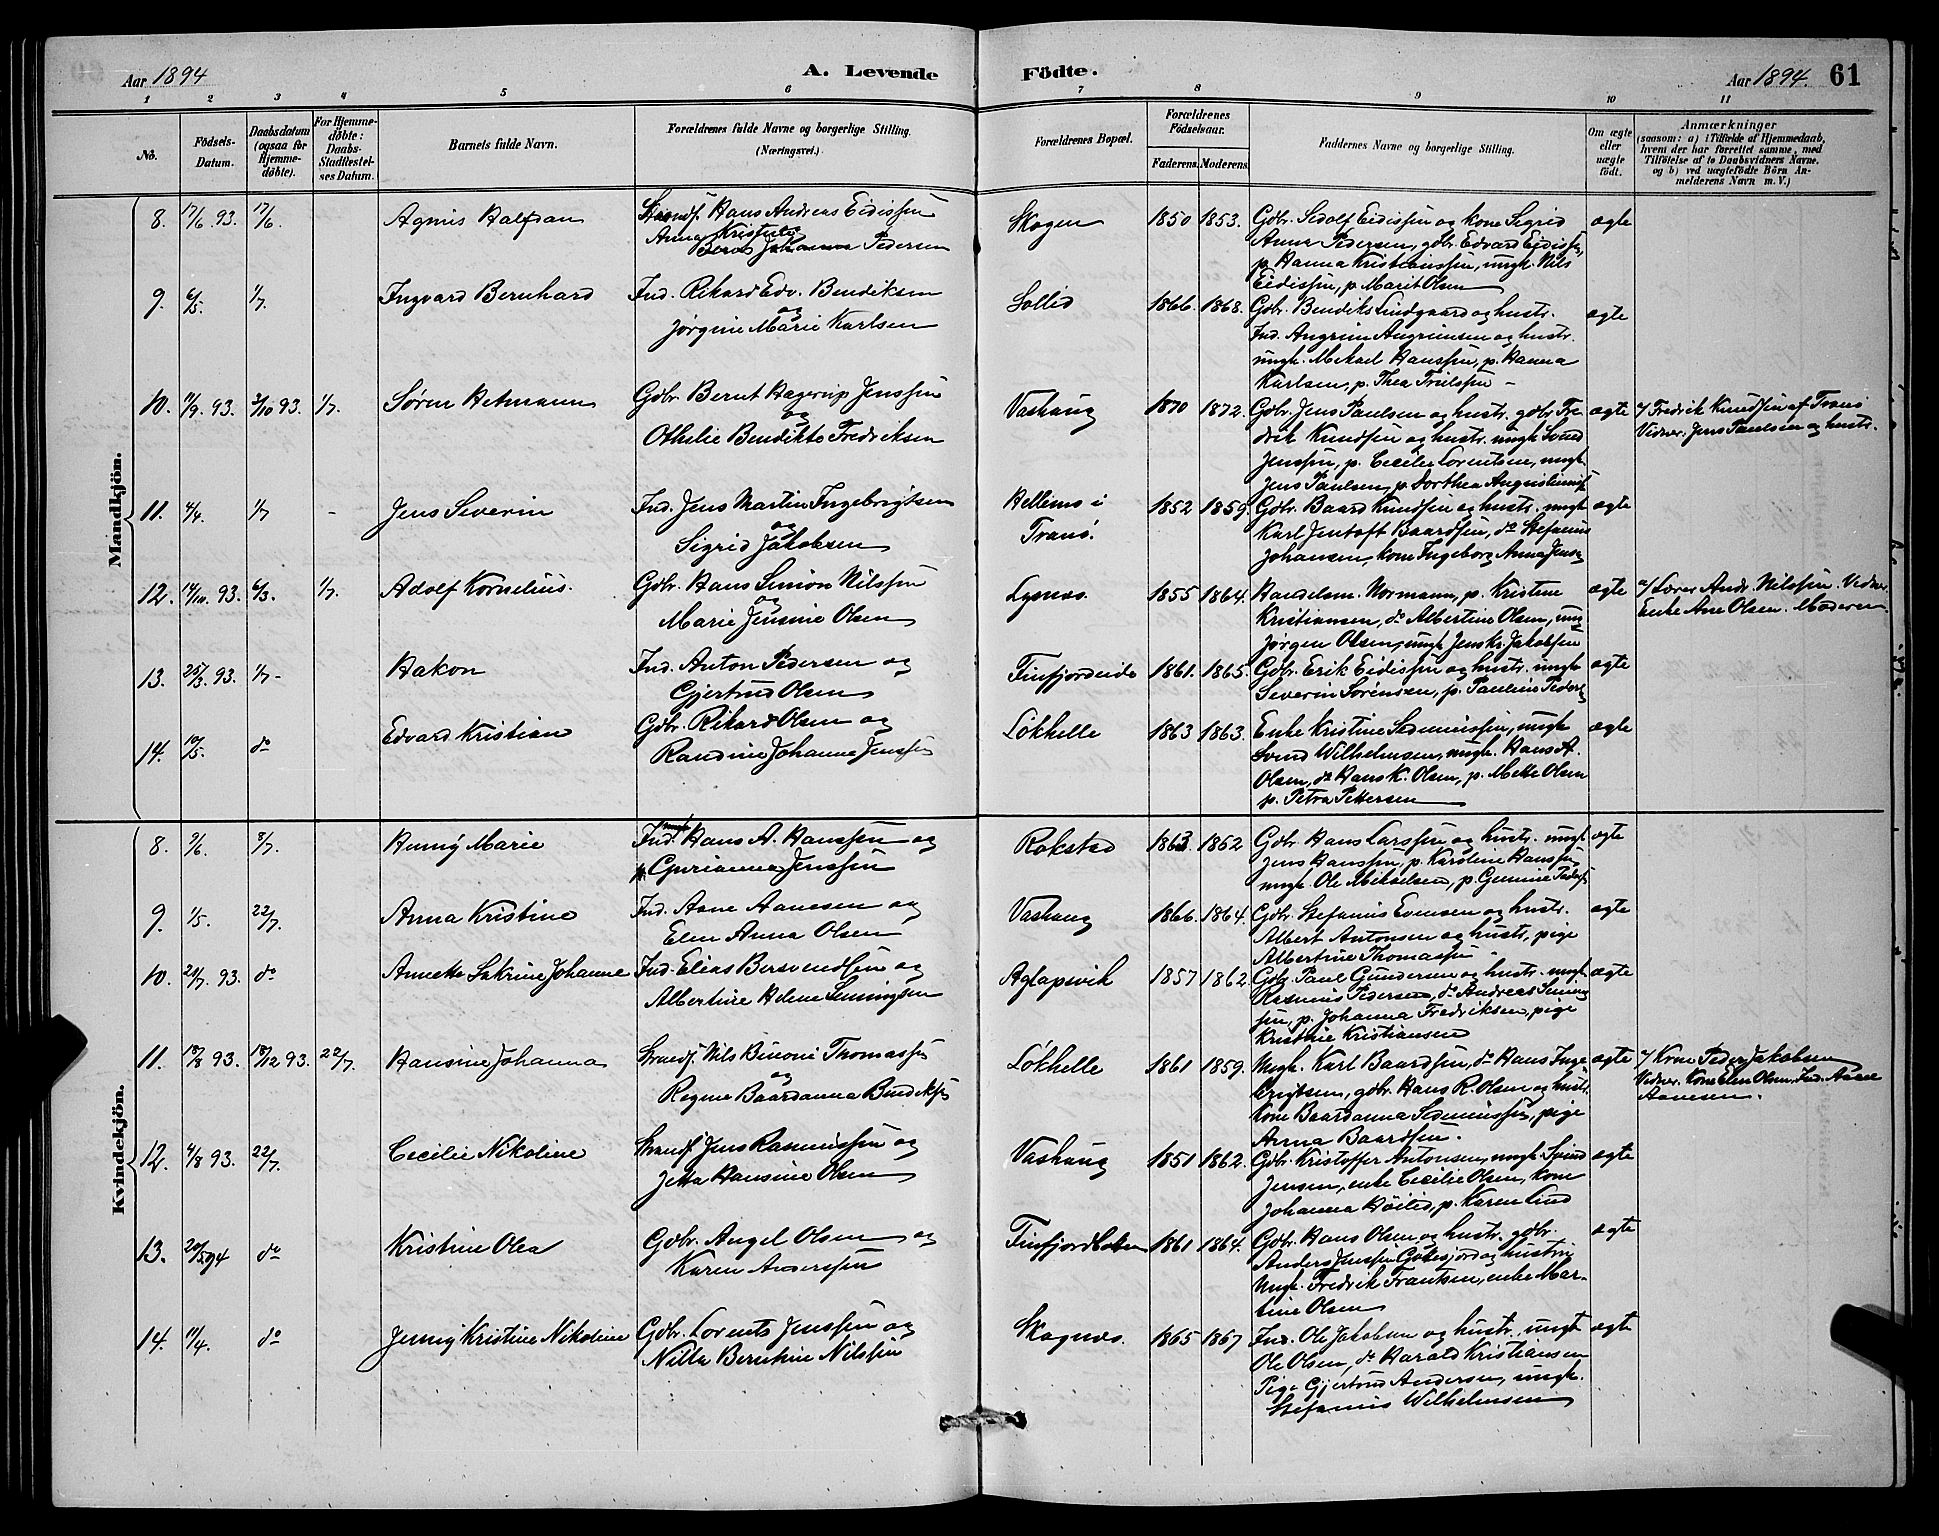 Aar 1894
A. Levende
Födte.
Aar 1894.
61
1 2 3 4 5 6 7 8 9 10 11
No.
Födsels-Datum.
Daabsdatum (ogsaa för Hjemme-döbte).
For Hjemme-döbte: Daabs-Stadfæstel-ses Datum.
Barnets fulde Navn.
Forældrenes fulde Navne og borgerlige Stilling. (Næringsvei.)
Forældrenes Bopæl.
Forældrenes Födselsaar.
Faderens. Moderens.
Faddernes Navne og borgerlige Stilling.
Om ægte eller uægte födt.
Anmærkninger (saasom: a) i Tilfælde af Hjemmedaab, hvem der har forrettet samme, med Tilföielse af to Daabsvidners Navne, og b) ved uægtefödte Börn An-melderens Navn m. V.)
Mandkjön.
8. 17/6. 93. 17/6. Agnis Halfdan
Strandf. Hans Andreas Eidissen
Anna Kristine Pedersen
Skogen 1850 1853.
Gdbr. Sedolf Eidissen og kone Sigrid
Anna Pedersen, gdbr. Edvard Eidissen,
p. Hanna Kristianssen, ungk. Nils
Eidissen, p. Marit Olsen
ægte
9. 6/5. 1/7. Ingvard Bernhard
Ind. Rikard Edv. Bendiksen
og
Jørgine Marie Karlsen
Sollid 1866 1868.
Gdbr. Bendiks Lindgaard og hustr.
Ind. Angrim Angrimsen og hustr.
ungk. Mikael Hanssen, p. Hanna
Karlsen, p. Thea Troelssen –
ægte
10. 11/9. 93. 3/10 93. 1/7. Søren Hetmann
Gdbr. Bernt Hagerup Jenssen
og
Othelie Bendikte Fredriksen
Vashaug 1870 1872.
Gdbr. Jens Paulsen og hustr. gdbr. Fre-
drik Knudsen og hustr. ungk. Svend
Jenssen, p. Cecilie Lorentsen, ungk.
Jens Paulsen, p. Dorthea
ægte
a/ Fredrik Knudsen af Tranö
Vidner. Jens Paulsen og hustr.
11. 4/4. 1/7 – Jens Severin
Ind. Jens Martin Ingebrigtsen
og
Sigrid Jakobsen
i
Tranö.
1852 1859.
Gdbr. Baard Knudsen og hustr. ungk.
Karl Jentoft Baardsen, do Stefanus
Johansen, kone Ingeborg Anna Jens
ægte
12. 14/10. 93. 6/3. 1/7. Adolf Kornelius.
Gdbr. Hans Simon Nilssen
og
Marie Jensine Olsen
Lysnes. 1855 1864.
Handelsm. Normann, p. Kristine
Kristiansen, do Albertine Olsen, ung
Jörgen Olsen, ungk. Jens Kr. Jakobsen
ægte
a/ Lærer Andr. Nilssen. Vidner
Enke Ane Olsen. Moderen
13. 25/3. 93. 1/7 – Hakon
Ind. Anton Pedersen og
Gjertrud Olsen
Finfjordeide 1861. 1865.
Gdbr. Erik Eidissen og hustr. ungk.
Severin Sörensen, p. Pauline Peders
ægte
14. 10/5. do Edvard Kristian
Gdbr. Rikard Olsen og
Randine Johanna Jenssen
Løkhelle 1863 1863.
Enke Kristine Sedeniussen, ungk.
Svend Wilhelmsen, ungk. Hans A.
Olsen, do Hans K. Olsen, p. Mette Olsen
p. Petra Pettersen
ægte
Kvindekjön.
8. 9/6. 8/7. Henny Marie
Ind. Hans A. Hanssen og
p. Gurianna Jenssen
Rokstad 1863. 1862
Gdbr. Hans Larssen og hustr. ungk.
Jens Hanssen, p. Karoline Hanssen
ungk. Ole Mikkelsen, p. Gunine Peders
ægte
9. 1/5. 22/7. Anna Kristine
Ind. Aane Aanesen og
Elen Anna Olsen
Vashaug 1866. 1864.
Gdbr. Stefanus Evensen og hustr.
Albert Antonsen og hustr, pige
Albertine Thomassen
ægte
10. 20/7. 93. do Annette Sakrine Johanne
Ind. Elias Bersvendsen og
Albertine Helene Simingsen
Aglapsvik 1857 1862
Gdbr. Paul Gundersen og hustr. ungk.
Rasmus Pedersen, do Andreas Siming
sen, p. Johanna Fredriksen, pige
Kristine Kristiansen
ægte
11. 18/8 93. 18/12 93. 22/7. Hansine Johanna
Strandf. Nils Benoni Thomassen
og
Regine Baardanna Bendiksen
Løkhelle 1861 1859.
Ungk. Karl Baardsen, do Hans Inge
brigtsen, gdbr. Hans R. Olsen og hustr.
Kone Baardanna Sedeniussen, pige
Anna Baardsen.
ægte
a/ Kone Peder Jakobsen
Vidner. Kone Elen Olsen, Ind. Aane
Aanesen.
12. 4/8 93. 22/7. Cecilie Nikoline
Strandf. Jens Rasmussen og
Jetta Hansine Olsen
Vashaug 1851 1862.
Gdbr. Kristoffer Antonsen, ungk. Svend
Jensen, enke Cecilie Olsen, kone
Johanna Höilid, p. Karen Lind
ægte
13. 20/5 94 do Kristine Olea
Gdbr. Angel Olsen og
Karen Anderssen
Finfjordbotten 1861 1864.
Gdbr. Hans Olsen og hustr. gdbr.
Anders Jenssen Gottesjord og hustru
Ungk. Fredrik Frantsen, enke Mar-
tine Olsen
ægte
14. 11/4. do Jenny Kristine Nikoline
Gdbr. Lorents Jenssen og
Nilla Berntine Nilssen
Skognes. 1865 1867
Ind. Ole Jakobsen og hustr. ungk.
Ole Olsen, do Harald Kristiansen
Pige Gjertrud Andersen, ungk.
Stefanus Wilhelmsen
ægte